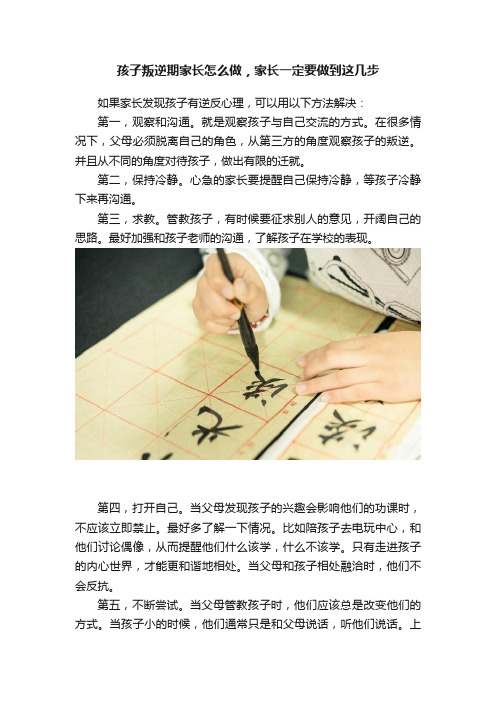 孩子叛逆期家长怎么做，家长一定要做到这几步
如果家长发现孩子有逆反心理，可以用以下方法解决：
第一，观察和沟通。就是观察孩子与自己交流的方式。在很多情
况下，父母必须脱离自己的角色，从第三方的角度观察孩子的叛逆。
并且从不同的角度对待孩子，做出有限的迁就。
第二，保持冷静。心急的家长要提醒自己保持冷静，等孩子冷静
下来再沟通。
第三，求教。管教孩子，有时候要征求别人的意见，开阔自己的
思路。最好加强和孩子老师的沟通，了解孩子在学校的表现。
第四，打开自己。当父母发现孩子的兴趣会影响他们的功课时，
不应该立即禁止。最好多了解一下情况。比如陪孩子去电玩中心，和
他们讨论偶像，从而提醒他们什么该学，什么不该学。只有走进孩子
的内心世界，才能更和谐地相处。当父母和孩子相处融洽时，他们不
会反抗。
第五，不断尝试。当父母管教孩子时，他们应该总是改变他们的
方式。当孩子小的时候，他们通常只是和父母说话，听他们说话。上